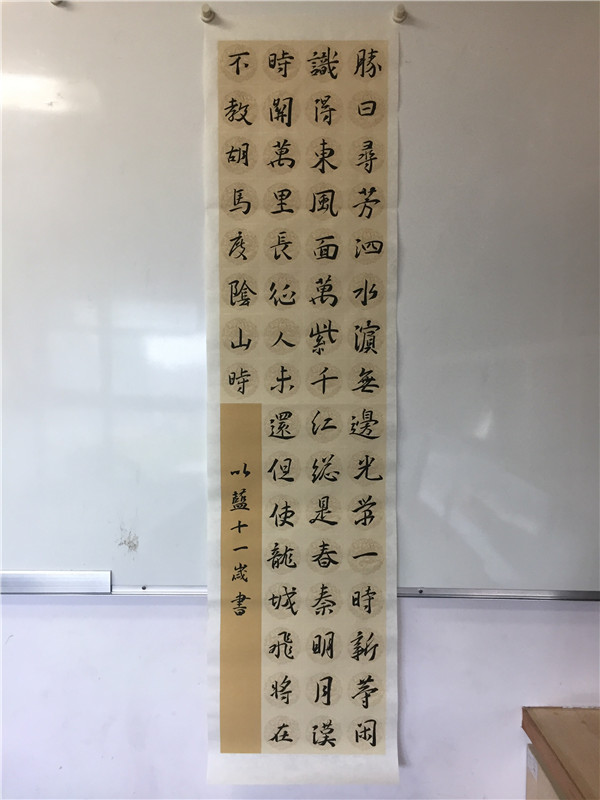 勝日尋芳泗水濱無邊光景一時新等閑
識得東風面萬紫千紅總是春秦明月漢
時關萬里長征人未還但使龍城飛將在
不教胡馬度陰山時
以藍十一歲書